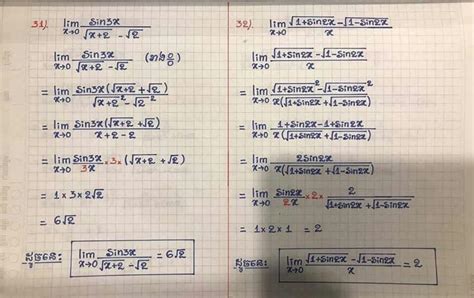 31). lim x→0 sin3x / √x+2 - √2
lim x→0 sin3x / √x+2 - √2 (រាង 0/0)
= lim x→0 sin3x(√x+2 + √2) / √x+2² - √2²
= lim x→0 sin3x(√x+2 + √2) / x+2-2
= lim x→0 sin3x / 3x × 3 × (√x+2 + √2)
= 1 × 3 × 2√2
= 6√2
ដូចនេះ: lim x→0 sin3x / √x+2 - √2 = 6√2
32). lim x→0 √1+sin2x - √1-sin2x / x
lim x→0 √1+sin2x - √1-sin2x / x
= lim x→0 √1+sin2x² - √1-sin2x² / x(√1+sin2x + √1-sin2x)
= lim x→0 1+sin2x - 1+sin2x / x(√1+sin2x + √1-sin2x)
= lim x→0 2sin2x / x(√1+sin2x + √1-sin2x)
= lim x→0 sin2x / 2x × 2 × 2 / √1+sin2x + √1-sin2x
= 1 × 2 × 1 = 2
ដូចនេះ: lim x→0 √1+sin2x - √1-sin2x / x = 2